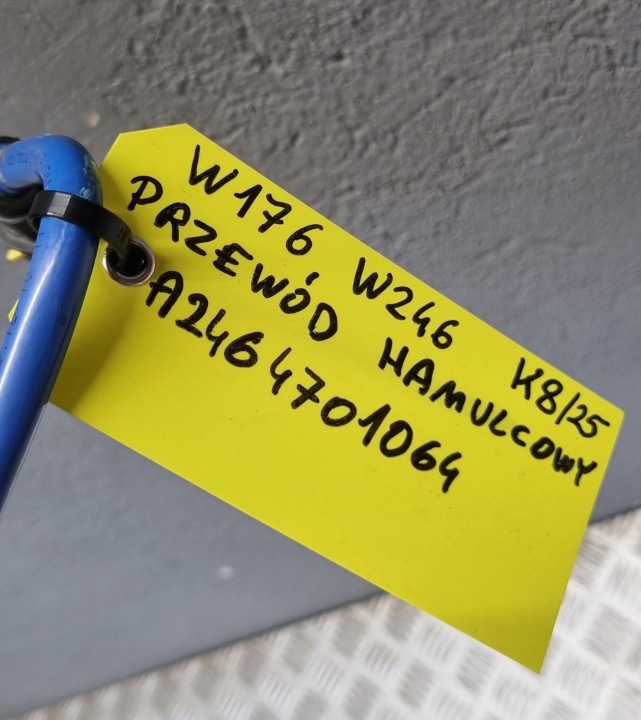 W176, W246 K8/25
PRZEWÓD HAMULCOWY
A2464701064